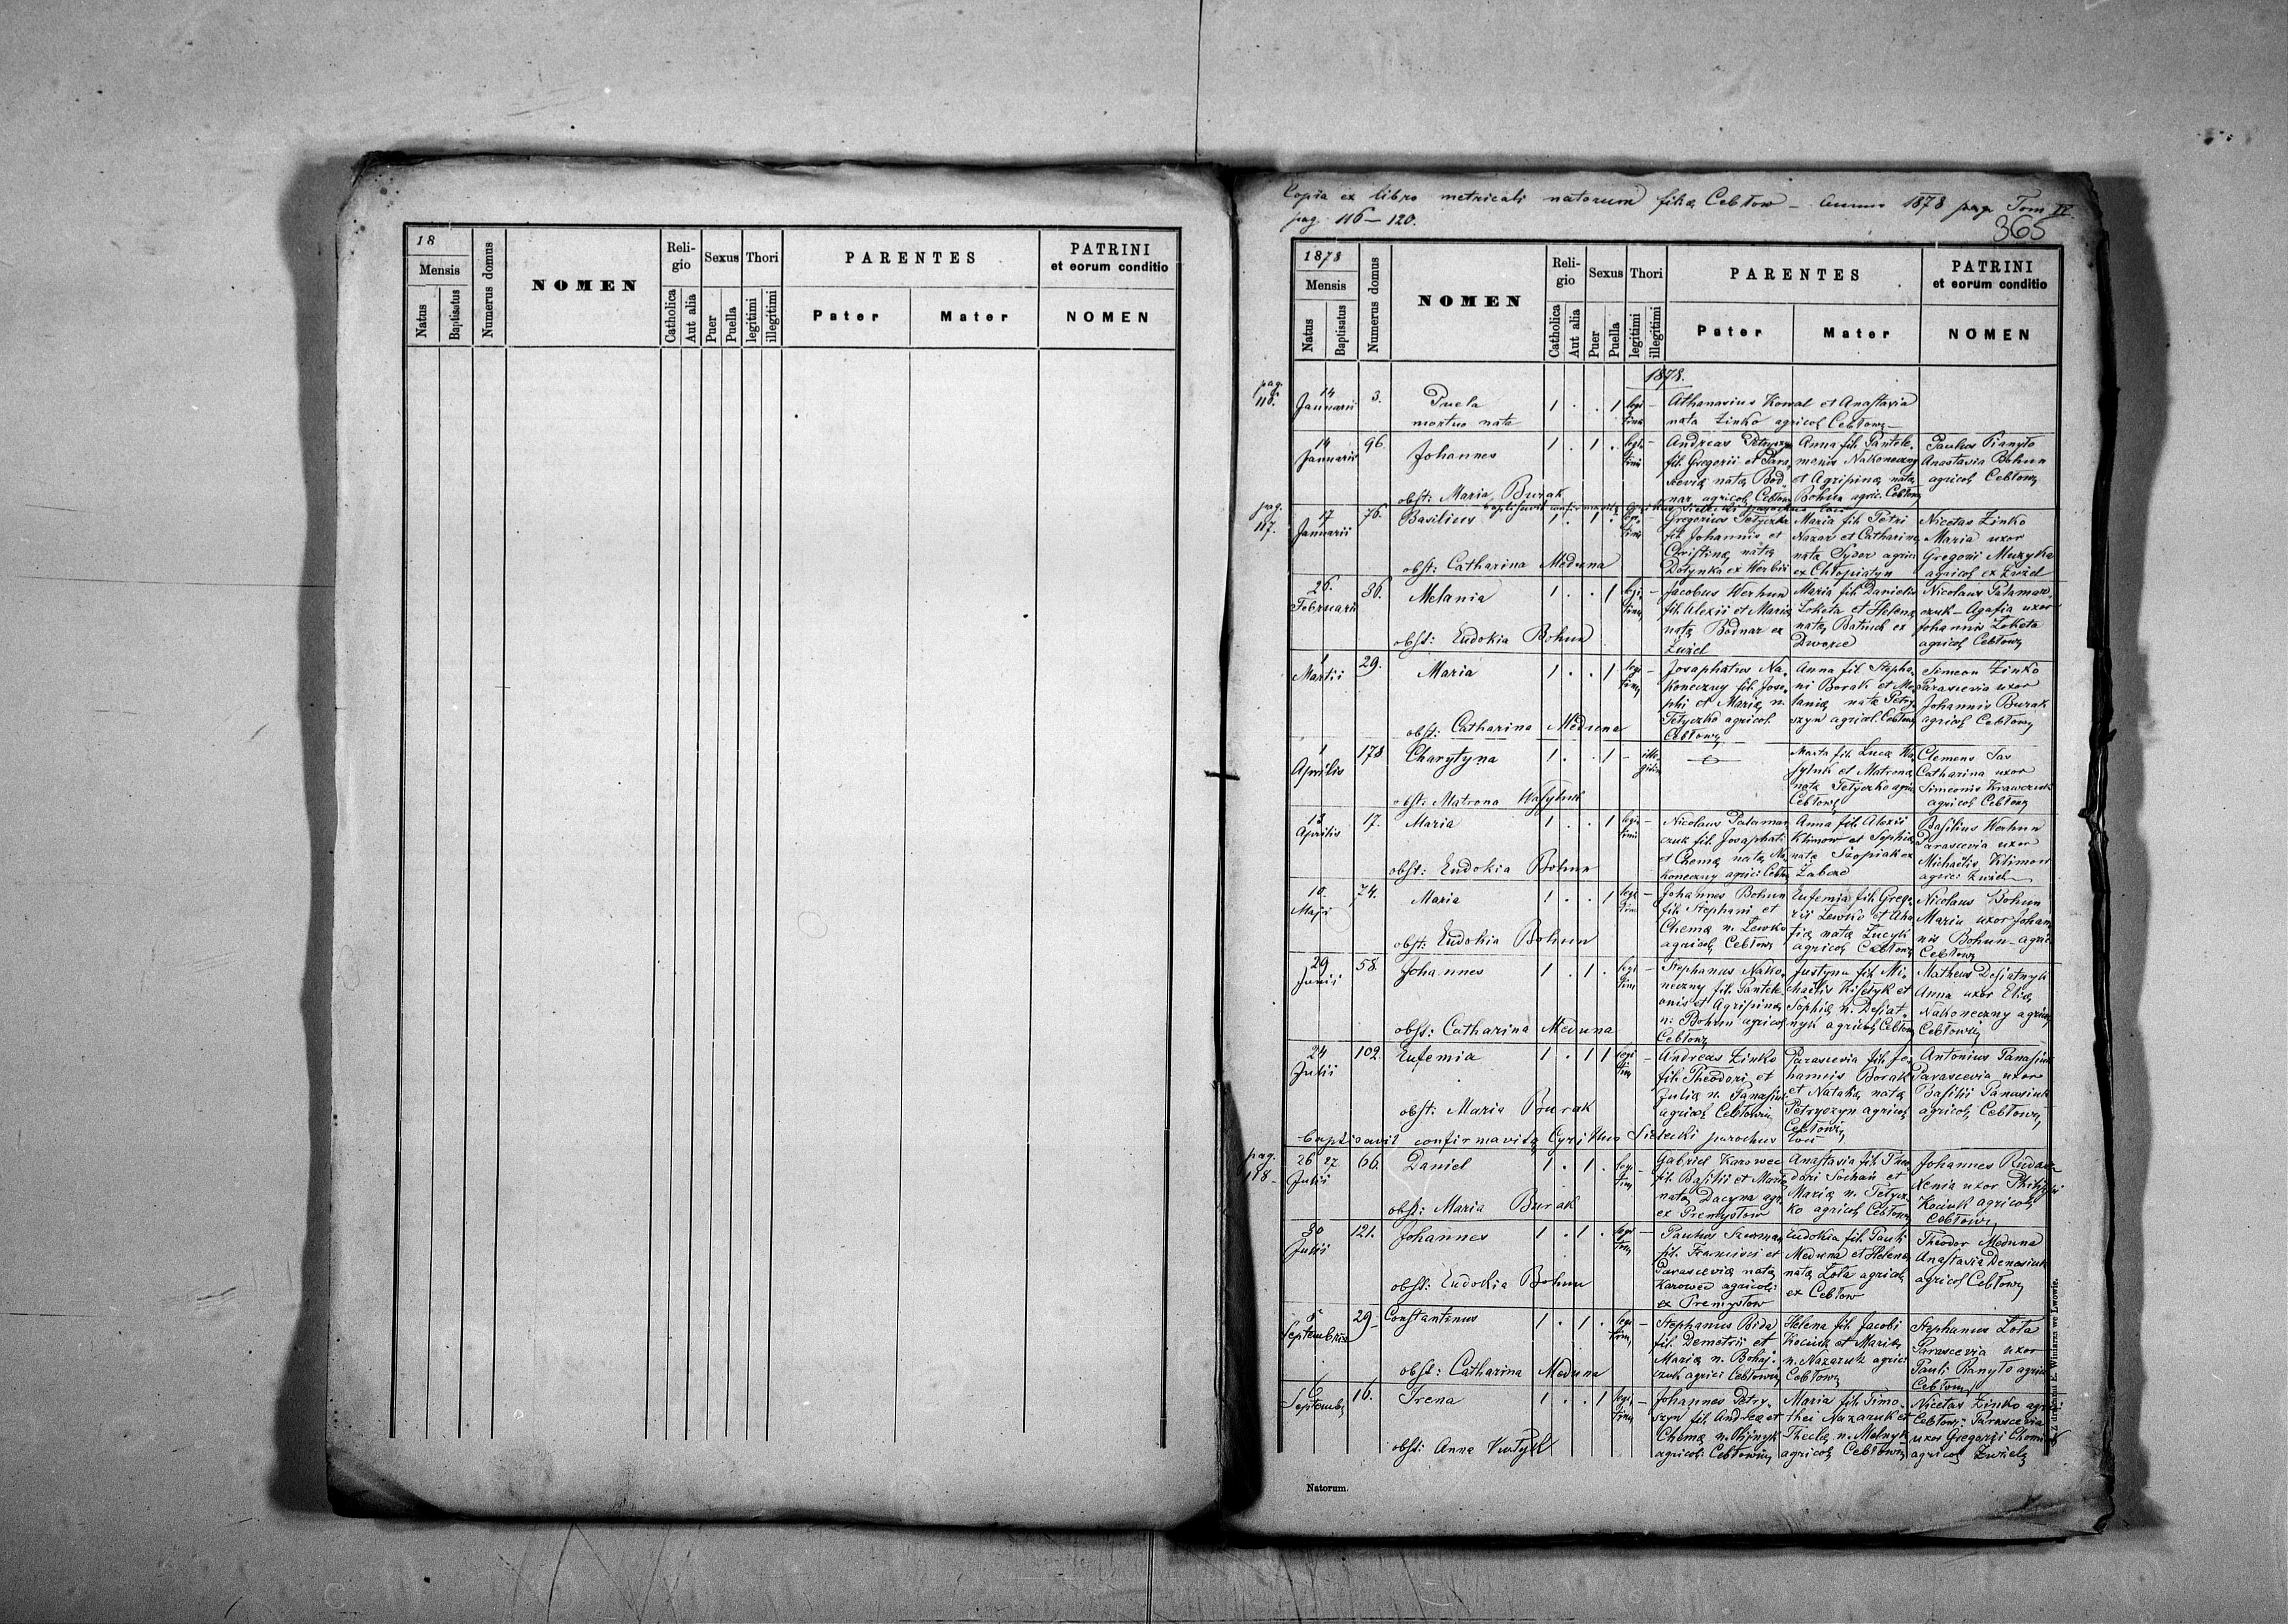 18
Mensis
Natus
Baptisatus
Numerus domus
NOMEN
Reli-
gio
Catholica
Aut alia
Sexus
Puer
Puella
Thori
legitimi
illegitimi
PARENTES
Pater
Mater
PATRINI
et eorum conditio
NOMEN
Copia ex libro metricali natorum filię Cebłow – Anno 1878 pag. Tom IV.
pag. 116 – 120.
365
1878
Mensis
Natus
Baptisatus
Numerus domus
NOMEN
Reli-
gio
Catholica
Aut alia
Sexus
Puer
Puella
Thori
legitimi
illegitimi
PARENTES
Pater
Mater
PATRINI
et eorum conditio
NOMEN
1878.
pag.
14
Januarii
3.
Puela
mortuo nata
1 . . 1 legi
timi –
Athanasius Kowal et Anastasia
nata Zinko agricol Cebłow
14
Januarii
96.
Johannes
obst: Maria Burak
1 . 1 . legi
timi –
Andreas
fil. Gregorii et Para-
scevię natę Bod-
nar agricol Cebłow
Anna fil. Pantele-
monis Nakoneczny
et Agripinę natę
Bohun agric. Cebłow
Paulus Pianyło
Anastasia Bohun
agricol Cebłow
pag.
117.
17
Januarii
76.
Basilius
obst: Catharina Meduna
1 . 1 .
Gregorius Tetyczko
fil. Johannis et
Christinę natę
Dotynka ex Werbiż
Maria fil. Petri
Nazar et Catharinę
natę Sydor agric
ex Chłopiatyn
Nicetas Zinko
Maria uxor
Gregorii Muzyka
agricol ex Żużel
26.
Februarii
36.
Melania
obst: Eudokia Bohun
1 . . 1 legi
timi –
Jacobus Werhun
fil. Alexii et Marię
natę Bodnar ex
Żużel
Maria fil. Danielis
Loketa et Helenę
natę ex
Dworce
Nicolaus Palamar-
czuk – Agafia uxor
Johannis Loketa
agricol Cebłow
1
Martii
29.
Maria
obst: Catharina Meduna
1 . . 1 legi
timi –
Josaphatus Na-
koneczny fil. Jose-
phi et Marię n.
Tetyczko agricol.
Cebłow
Anna fil. Stepha-
ni Borak et Me-
lanię natę Petry-
szyn agricol. Cebłow
Simeon Zinko
Parascevia uxor
Johannis Burak
agricol Cebłow
1
Aprilis
178
Charytyna
obst: Matrona Wasyluk
1 . . 1 –
Marta fil. Lucę Wa-
syluk et Matronę
natę Tetyczko agric
Cebłow
Clemens Sas
Catharina uxor
Simeonis Krawczuk
agricol Cebłow
13
Aprilis
17.
Maria
obst: Eudokia Bohun
1 . . 1 legi
timi –
Nicolaus Palamar
czuk fil. Josaphati
et Chemę natę Na-
koneczny agric Cebłow
Anna fil. Alexii
Klimow et Sophię
natę ex
Żabcze
Basilius Werhun
Parascevia uxor
Michaelis Klimow
agric Żużel
10.
Maji
74.
Maria
obst: Eudokia Bohun
1 . . 1 legi
timi –
Johannes Bohun
fil. Stephani et
Chemę n. Lewko
agricol Cebłow
Eufemia fil. Grego-
rii Lewko et Aha-
fię natę Lucyk
agricol Cebłow
Nicolaus Bohun
Maria uxor Johan-
nis Bohun – agric
Cebłow
29
Junii
58.
Johannes
obst: Catharina Meduna
1 . 1 . legi
timi –
Stephanus Nako-
neczny fil. Pantele-
onis et Agripinę
n. Bohun agricol
Cebłow
Justyna fil. Mi-
chaelis Kisełyk et
Sophię n. Desiat-
nyk agricol Cebłow
Matheus Desiatnyk
Anna uxor Elię
Nakoneczny agricol
Cebłow
24
Julii
102.
Eufemia
obst: Maria Burak
1 . 1 1 legi
timi –
Andreas Zinko
fil. Theodori et
Julię n. Panasiuk
agricol Cebłow
Parascevia fil. Jo-
hannis Borak
et Natalię natę
Petryszyn agricol
Cebłow
Antonius Panasiuk
Parascevia uxor
Basilii Panasiuk
agricol Cebłow
baptisavit confirmavitq Cyrillus Sielecki parochus loci
pag.
118 –
26 27
Julii
66.
Daniel
obst: Maria Burak
1 . 1 . legi
tim –
Gabriel Karowec
fil. Basilii et Marię
natę Dacyna agr.
ex Premysłow
Anastasia fil. Theo-
dori Sochan et
Marię n. Tetycz-
ko agricol Cebłow
Johannes
Xenia uxor Philippi
Kociuk agricol
Cebłow
30
Julii
121.
Johannes
obst: Eudokia Bohun
1 . 1 . legi
tim –
Paulus Szurman
fil. Francisci et
Parascevię natę
Karowec agricol
ex Premysłow
Eudokia fil. Pauli
Meduna et Helenę
natę Łota agricol
ex Cebłow
Theodor Meduna
Anastasia Denasiuk
agricol Cebłow
5
Septembris
29
Constantinus
obst: Catharina Meduna
1 . 1 . legi
timi –
Stephanus Bida
fil. Demetrii et
Marię n. Bohaj-
czuk agric Cebłow
Helena fil. Jacobi
Kociuk et Marię
n. Nazaruk agric
Cebłow
Stephanus Łota
Parascevia uxor
Pauli Panyło agric
Cebłow
6
Septemb
16.
Irena
obst: Anna
1 . . 1 legi
timi –
Johannes Petry-
szyn fil. Andreę et
Chemę n.
agricol. Cebłow
Maria fil. Timo-
thei Nazaruk et
Theclę n. Melnyk
agricol Cebłow
Nicetas Zinko agr.
Cebłow. Parascevia
uxor Gregorii
agricol Żużel
Natorum.
Z drukarni E. Winiarza we Lwowie.